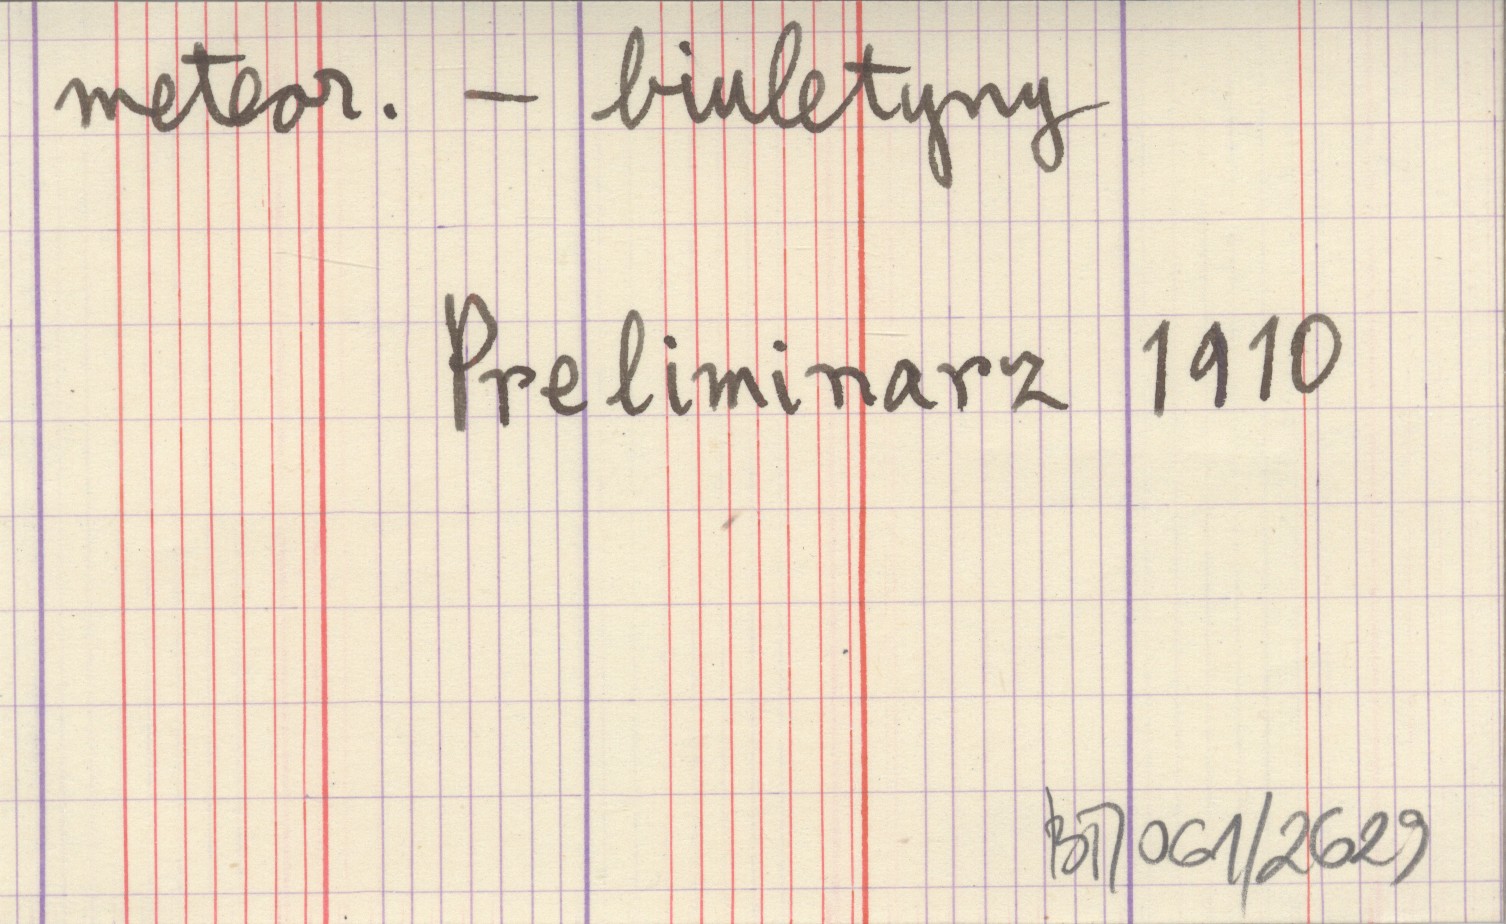 meteor. – biuletyny
Preliminarz 1910
061/2629